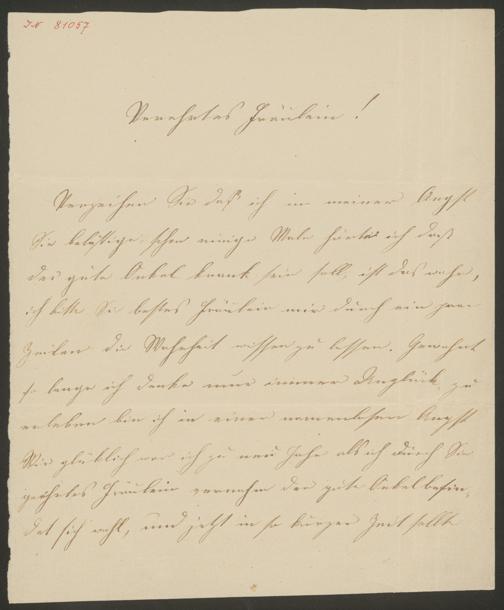 I.N 81057
Verehrtes Fräulein!
Verzeihen Sie daß ich in meiner Angst
Sie belästige, schon einige Male hörte ich daß
der gute Onkel krank sein soll, ist das wahr,
ich bitte Sie bestes Fräulein mir durch ein paar
Zeilen die Wahrheit wissen zu lassen. Gewohnt
so lange ich denke nur immer Unglück zu
erleben bin ich in einer namenlosen Angst
Wie glücklich war ich zu neu Jahr als ich durch Sie
geehrtes Fräulein vernahm der gute Onkel befin-
det sich wohl, und jetzt in so kurzer Zeit sollte